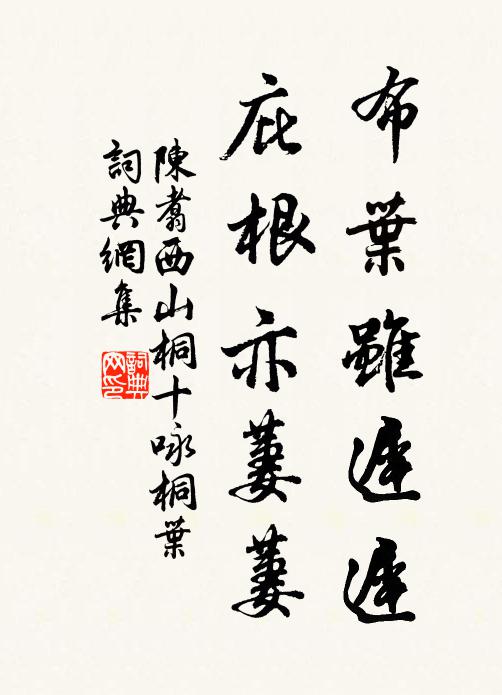 布葉雖遲遲
庇根亦萋萋
陳翥西山桐十咏桐葉
詞典網集
詞典网印